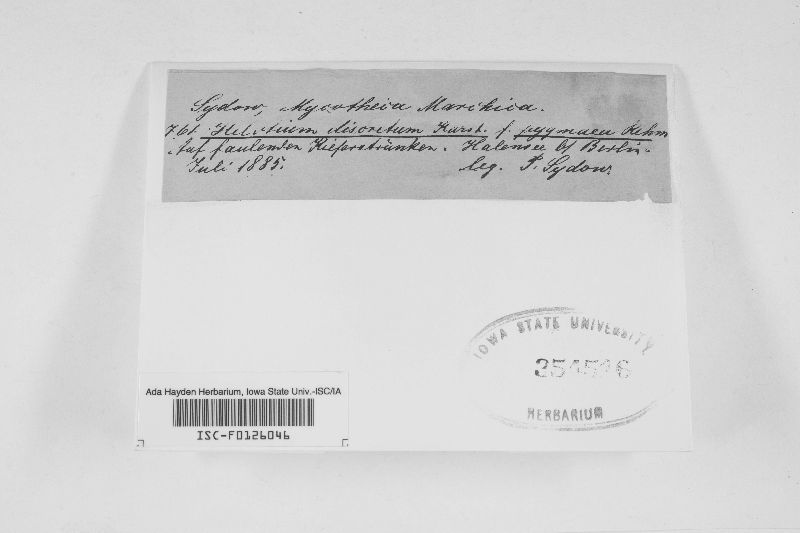 Sydow, Mycotheca Marchica.
761. Helotium discretum Karst. f. pygmaea Rehm
Auf faulenden Kiefernstrünken. Halensee bf Berlin.
Juli 1885.
leg. P. Sydow.
IOWA STATE UNIVERSITY
HERBARIUM
Ada Hayden Herbarium, Iowa State Univ.-ISC/IA
ISC-F0126046